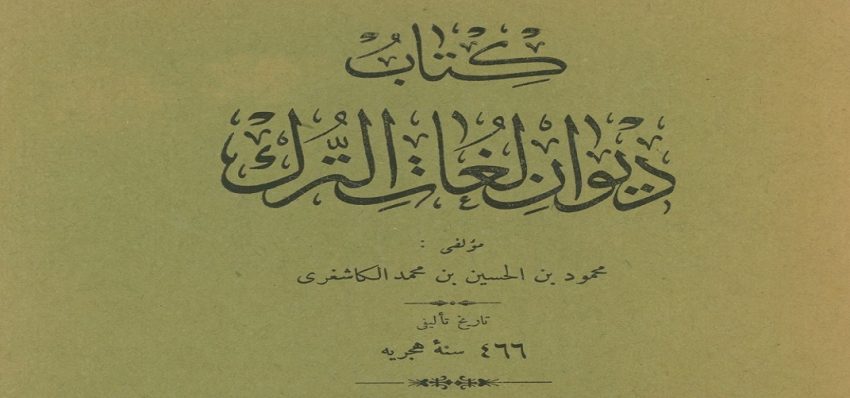 كتاب
ديوان لغات الترك
مؤلفى :
محمود بن الحسين بن محمد الكاشغرى
تاريخ تأليفى
٤٦٦ سنۀ هجريه